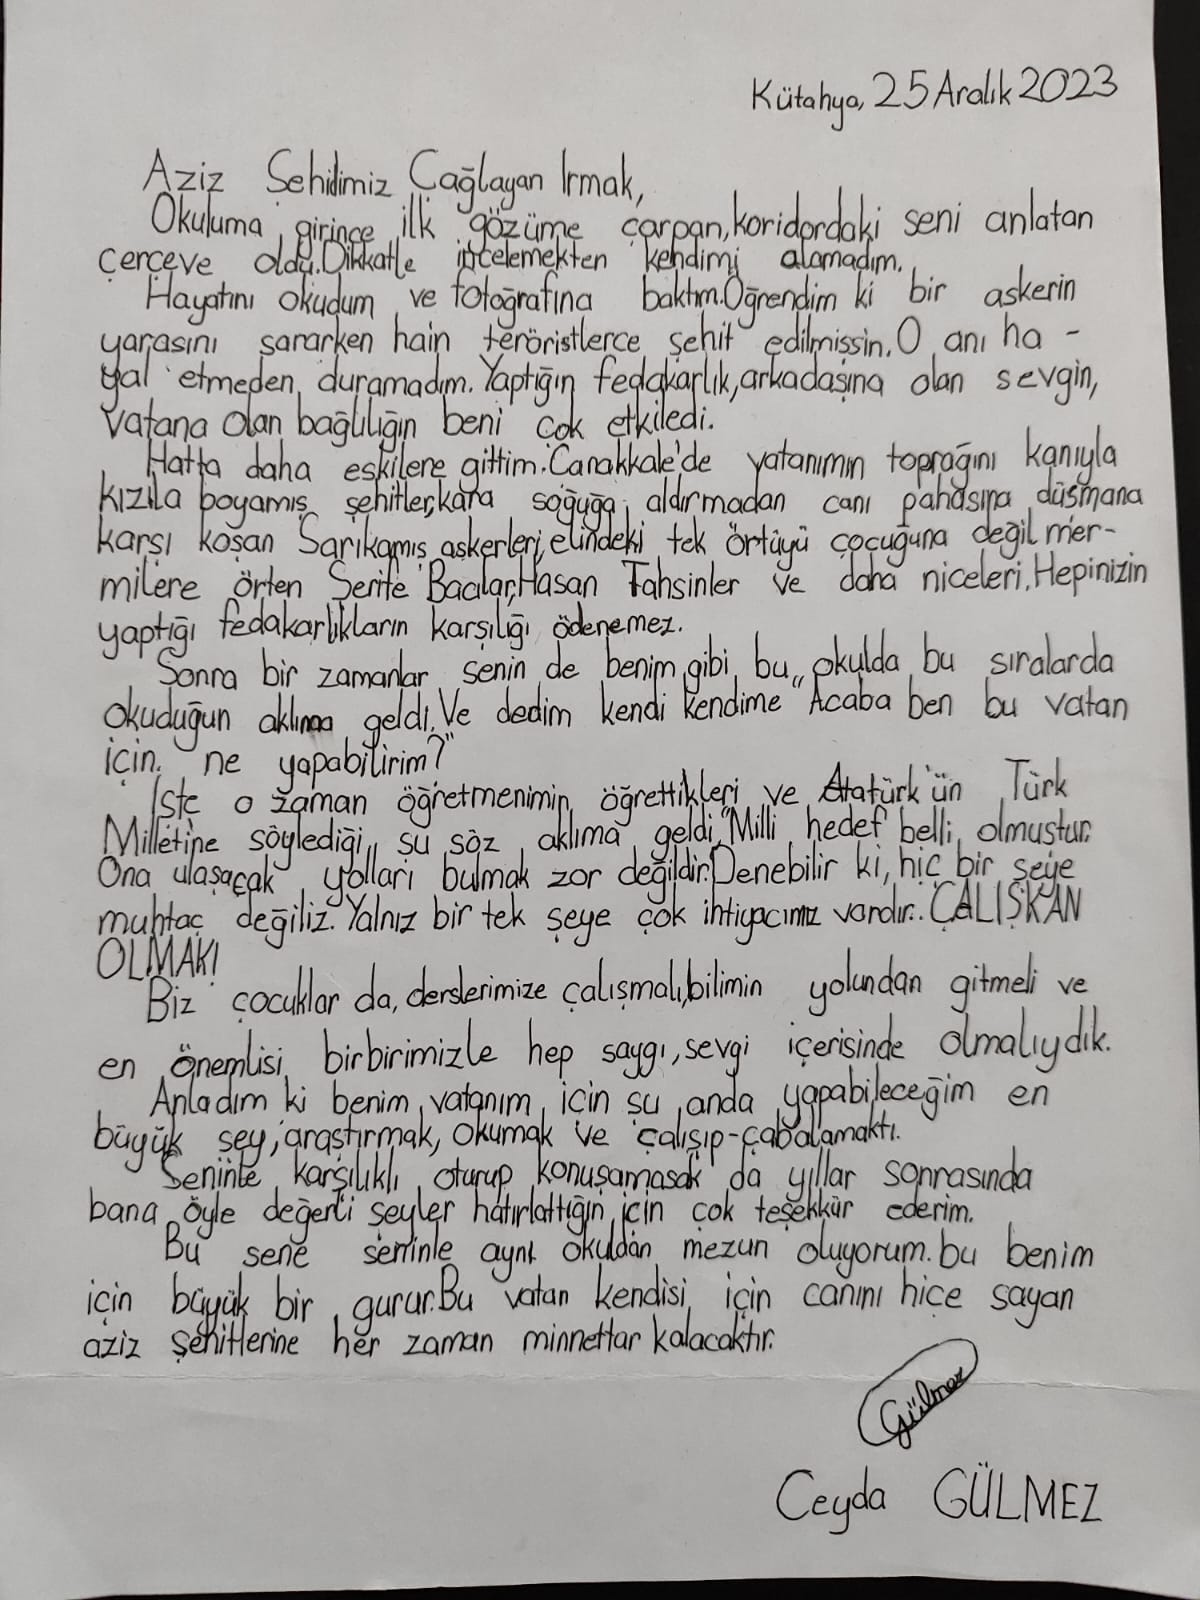 Kütahya, 25 Aralık 2023
Aziz Şehidimiz Çağlayan Irmak,
Okuluma girince ilk gözüme çarpan, koridordaki seni anlatan
çerçeve oldu. Dikkatle incelemekten kendimi alamadım.
Hayatını okudum ve fotoğrafına baktım. Öğrendim ki bir askerin
yarasını sararken hain teröristlerce şehit edilmişsin. O anı ha-
yal etmeden duramadım. Yaptığın fedakarlık, arkadaşına olan sevgin,
vatana olan bağlılığın beni çok etkiledi.
Hatta daha eskilere gittim. Çanakkale'de vatanımın toprağını kanıyla
kızıla boyamış şehitler, kara soğuğa aldırmadan canı pahasına düşmana
karşı koşan Sarıkamış askerleri, elindeki tek örtüyü çocuğuna değil mer-
milere örten Şerife Bacılar, Hasan Tahsinler ve daha niceleri. Hepinizin
yaptığı fedakarlıkların karşılığı ödenemez.
Sonra bir zamanlar senin de benim gibi bu okulda bu sıralarda
okuduğun aklıma geldi. Ve dedim kendi kendime "Acaba ben bu vatan
için ne yapabilirim?"
İşte o zaman öğretmenimin öğrettikleri ve Atatürk'ün Türk
Milletine söylediği şu söz aklıma geldi "Milli hedef belli olmuştur.
Ona ulaşacak yolları bulmak zor değildir. Denebilir ki, hiç bir şeye
muhtaç değiliz. Yalnız bir tek şeye çok ihtiyacımız vardır.. ÇALIŞKAN
OLMAK!
Biz çocuklar da, derslerimize çalışmalı, bilimin yolundan gitmeli ve
en önemlisi birbirimizle hep saygı, sevgi içerisinde olmalıydık.
Anladım ki benim vatanım için şu anda yapabileceğim en
büyük şey; araştırmak, okumak ve çalışıp-çabalamaktı.
Seninle karşılıklı oturup konuşamasak da yıllar sonrasında
bana öyle değerli şeyler hatırlattığın için çok teşekkür ederim.
Bu sene seninle aynı okuldan mezun oluyorum. bu benim
için büyük bir gurur. Bu vatan kendisi için canını hiçe sayan
aziz şehitlerine her zaman minnettar kalacaktır.
Gülmez
Ceyda GÜLMEZ